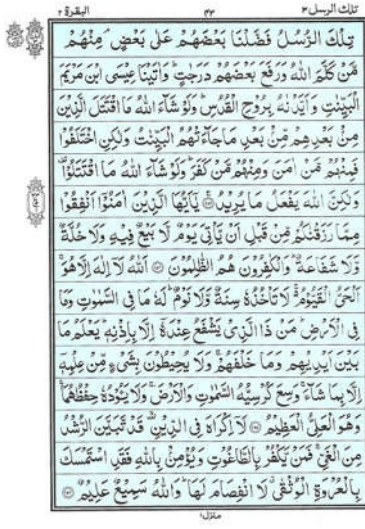 تلك الرسل ٣ ٤٣ البقرة ٢
تِلْكَ الرُّسُلُ فَضَّلْنَا بَعْضَهُمْ عَلٰى بَعْضٍ ۘ مِنْهُمْ
مَّنْ كَلَّمَ اللّٰهُ وَرَفَعَ بَعْضَهُمْ دَرَجٰتٍ ؕ وَاٰتَيْنَا عِيْسَى ابْنَ مَرْيَمَ
الْبَيِّنٰتِ وَاَيَّدْنٰهُ بِرُوْحِ الْقُدُسِ ؕ وَلَوْ شَآءَ اللّٰهُ مَا اقْتَتَلَ الَّذِيْنَ
مِنْۢ بَعْدِهِمْ مِّنْۢ بَعْدِ مَا جَآءَتْهُمُ الْبَيِّنٰتُ وَلٰكِنِ اخْتَلَفُوْا
فَمِنْهُمْ مَّنْ اٰمَنَ وَمِنْهُمْ مَّنْ كَفَرَ ؕ وَلَوْ شَآءَ اللّٰهُ مَا اقْتَتَلُوْا
وَلٰكِنَّ اللّٰهَ يَفْعَلُ مَا يُرِيْدُ ۝ يٰۤاَيُّهَا الَّذِيْنَ اٰمَنُوْۤا اَنْفِقُوْا
مِمَّا رَزَقْنٰكُمْ مِّنْ قَبْلِ اَنْ يَّاْتِيَ يَوْمٌ لَّا بَيْعٌ فِيْهِ وَلَا خُلَّةٌ
وَّلَا شَفَاعَةٌ ؕ وَالْكٰفِرُوْنَ هُمُ الظّٰلِمُوْنَ ۝ اَللّٰهُ لَاۤ اِلٰهَ اِلَّا هُوَ ۚ
اَلْحَيُّ الْقَيُّوْمُ ۚ لَا تَاْخُذُهٗ سِنَةٌ وَّلَا نَوْمٌ ؕ لَهٗ مَا فِي السَّمٰوٰتِ وَمَا
فِي الْاَرْضِ ؕ مَنْ ذَا الَّذِيْ يَشْفَعُ عِنْدَهٗۤ اِلَّا بِاِذْنِهٖ ؕ يَعْلَمُ مَا
بَيْنَ اَيْدِيْهِمْ وَمَا خَلْفَهُمْ ۚ وَلَا يُحِيْطُوْنَ بِشَيْءٍ مِّنْ عِلْمِهٖۤ
اِلَّا بِمَا شَآءَ ۚ وَسِعَ كُرْسِيُّهُ السَّمٰوٰتِ وَالْاَرْضَ ۚ وَلَا يَـُٔوْدُهٗ حِفْظُهُمَا ۚ
وَهُوَ الْعَلِيُّ الْعَظِيْمُ ۝ لَاۤ اِكْرَاهَ فِي الدِّيْنِ ۙ قَدْ تَّبَيَّنَ الرُّشْدُ
مِنَ الْغَيِّ ۚ فَمَنْ يَّكْفُرْ بِالطَّاغُوْتِ وَيُؤْمِنْۢ بِاللّٰهِ فَقَدِ اسْتَمْسَكَ
بِالْعُرْوَةِ الْوُثْقٰى ۗ لَا انْفِصَامَ لَهَا ؕ وَاللّٰهُ سَمِيْعٌ عَلِيْمٌ ۝
منزل ١